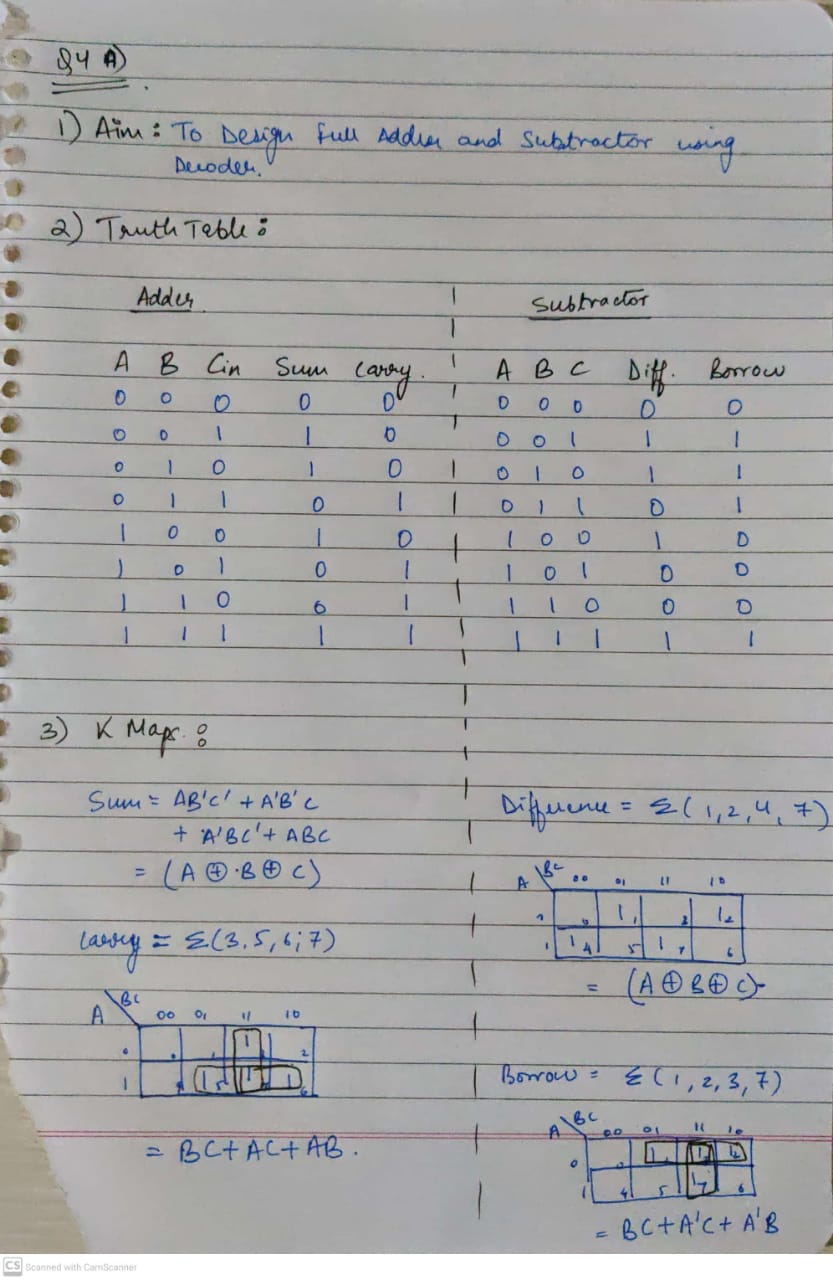 Q4 A)
1) Aim : To Design full Adder and Subtractor using
Decoder.
2) Truth Table :
Adder
A B Cin Sum Carry.
0 0 0 0 0
0 0 1 1 0
0 1 0 1 0
0 1 1 0 1
1 0 0 1 0
1 0 1 0 1
1 1 0 0 1
1 1 1 1 1
Subtractor
A B C Diff. Borrow
0 0 0 0 0
0 0 1 1 1
0 1 0 1 1
0 1 1 0 1
1 0 0 1 0
1 0 1 0 0
1 1 0 0 0
1 1 1 1 1
3) K Maps :
Sum = AB'C' + A'B'C
+ A'BC' + ABC
= (A ⊕ B ⊕ C)
Carry = Σ(3,5,6,7)
A \ BC 00 01 11 10
0 1 2
1 1 5 1 1 6
= BC + AC + AB.
Difference = Σ(1,2,4,7)
A \ BC 00 01 11 10
0 1 1 3 1 2
1 1 4 5 1 7 6
= (A ⊕ B ⊕ C)
Borrow = Σ(1,2,3,7)
A \ BC 00 01 11 10
0 1 1 1
1 4 5 1 7 6
= BC + A'C + A'B
CS Scanned with CamScanner